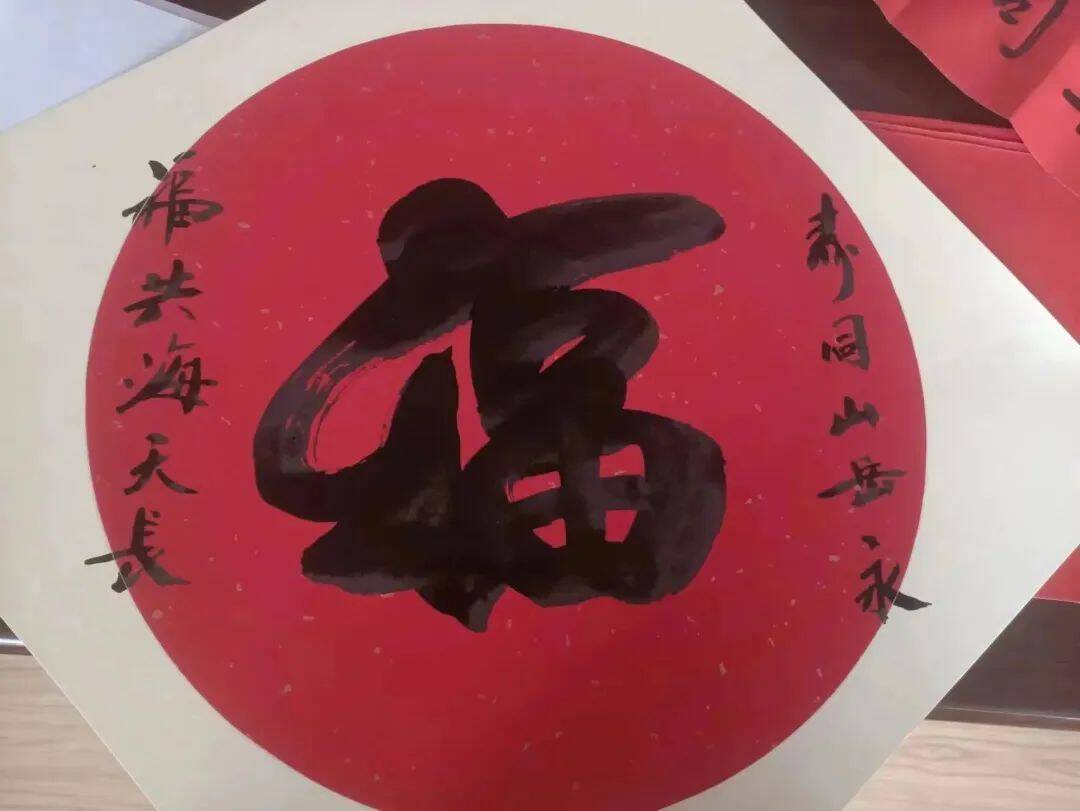 寿同山岳永
福
福共海天长
司